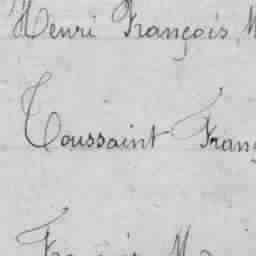 Henri François
Toussaint Franç